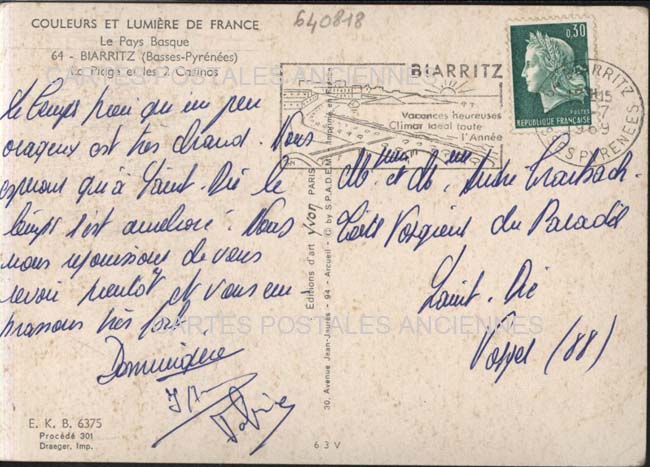 COULEURS ET LUMIÈRE DE FRANCE
Le Pays Basque
64 - BIARRITZ (Basses-Pyrénées)
La Plage et les 2 Casinos
640818
CARTES POSTALES ANCIENNES
le temps bien qu'un peu
orageux est très chaud. Nous
espérons qu'à Saint. Dié le
temps s'est amélioré. Nous
nous réjouissons de vous
revoir bientôt et vous em
brassons très fort.
Dominique
CARTES POSTALES ANCIENNES
E. K. B. 6375
Procédé 301
Draeger, Imp.
Editions d'art yvon PARIS
30, Avenue Jean-Jaurès - 94 - Arcueil - © by S.P.A.D.E.M.
63V
BIARRITZ
Vacances heureuses
Climat idéal toute
l'Année
0,30
POSTES
REPUBLIQUE FRANÇAISE
BIARRITZ
1969
PYRENEES
et
du Paradis
Saint. Dié
Vosges (88)